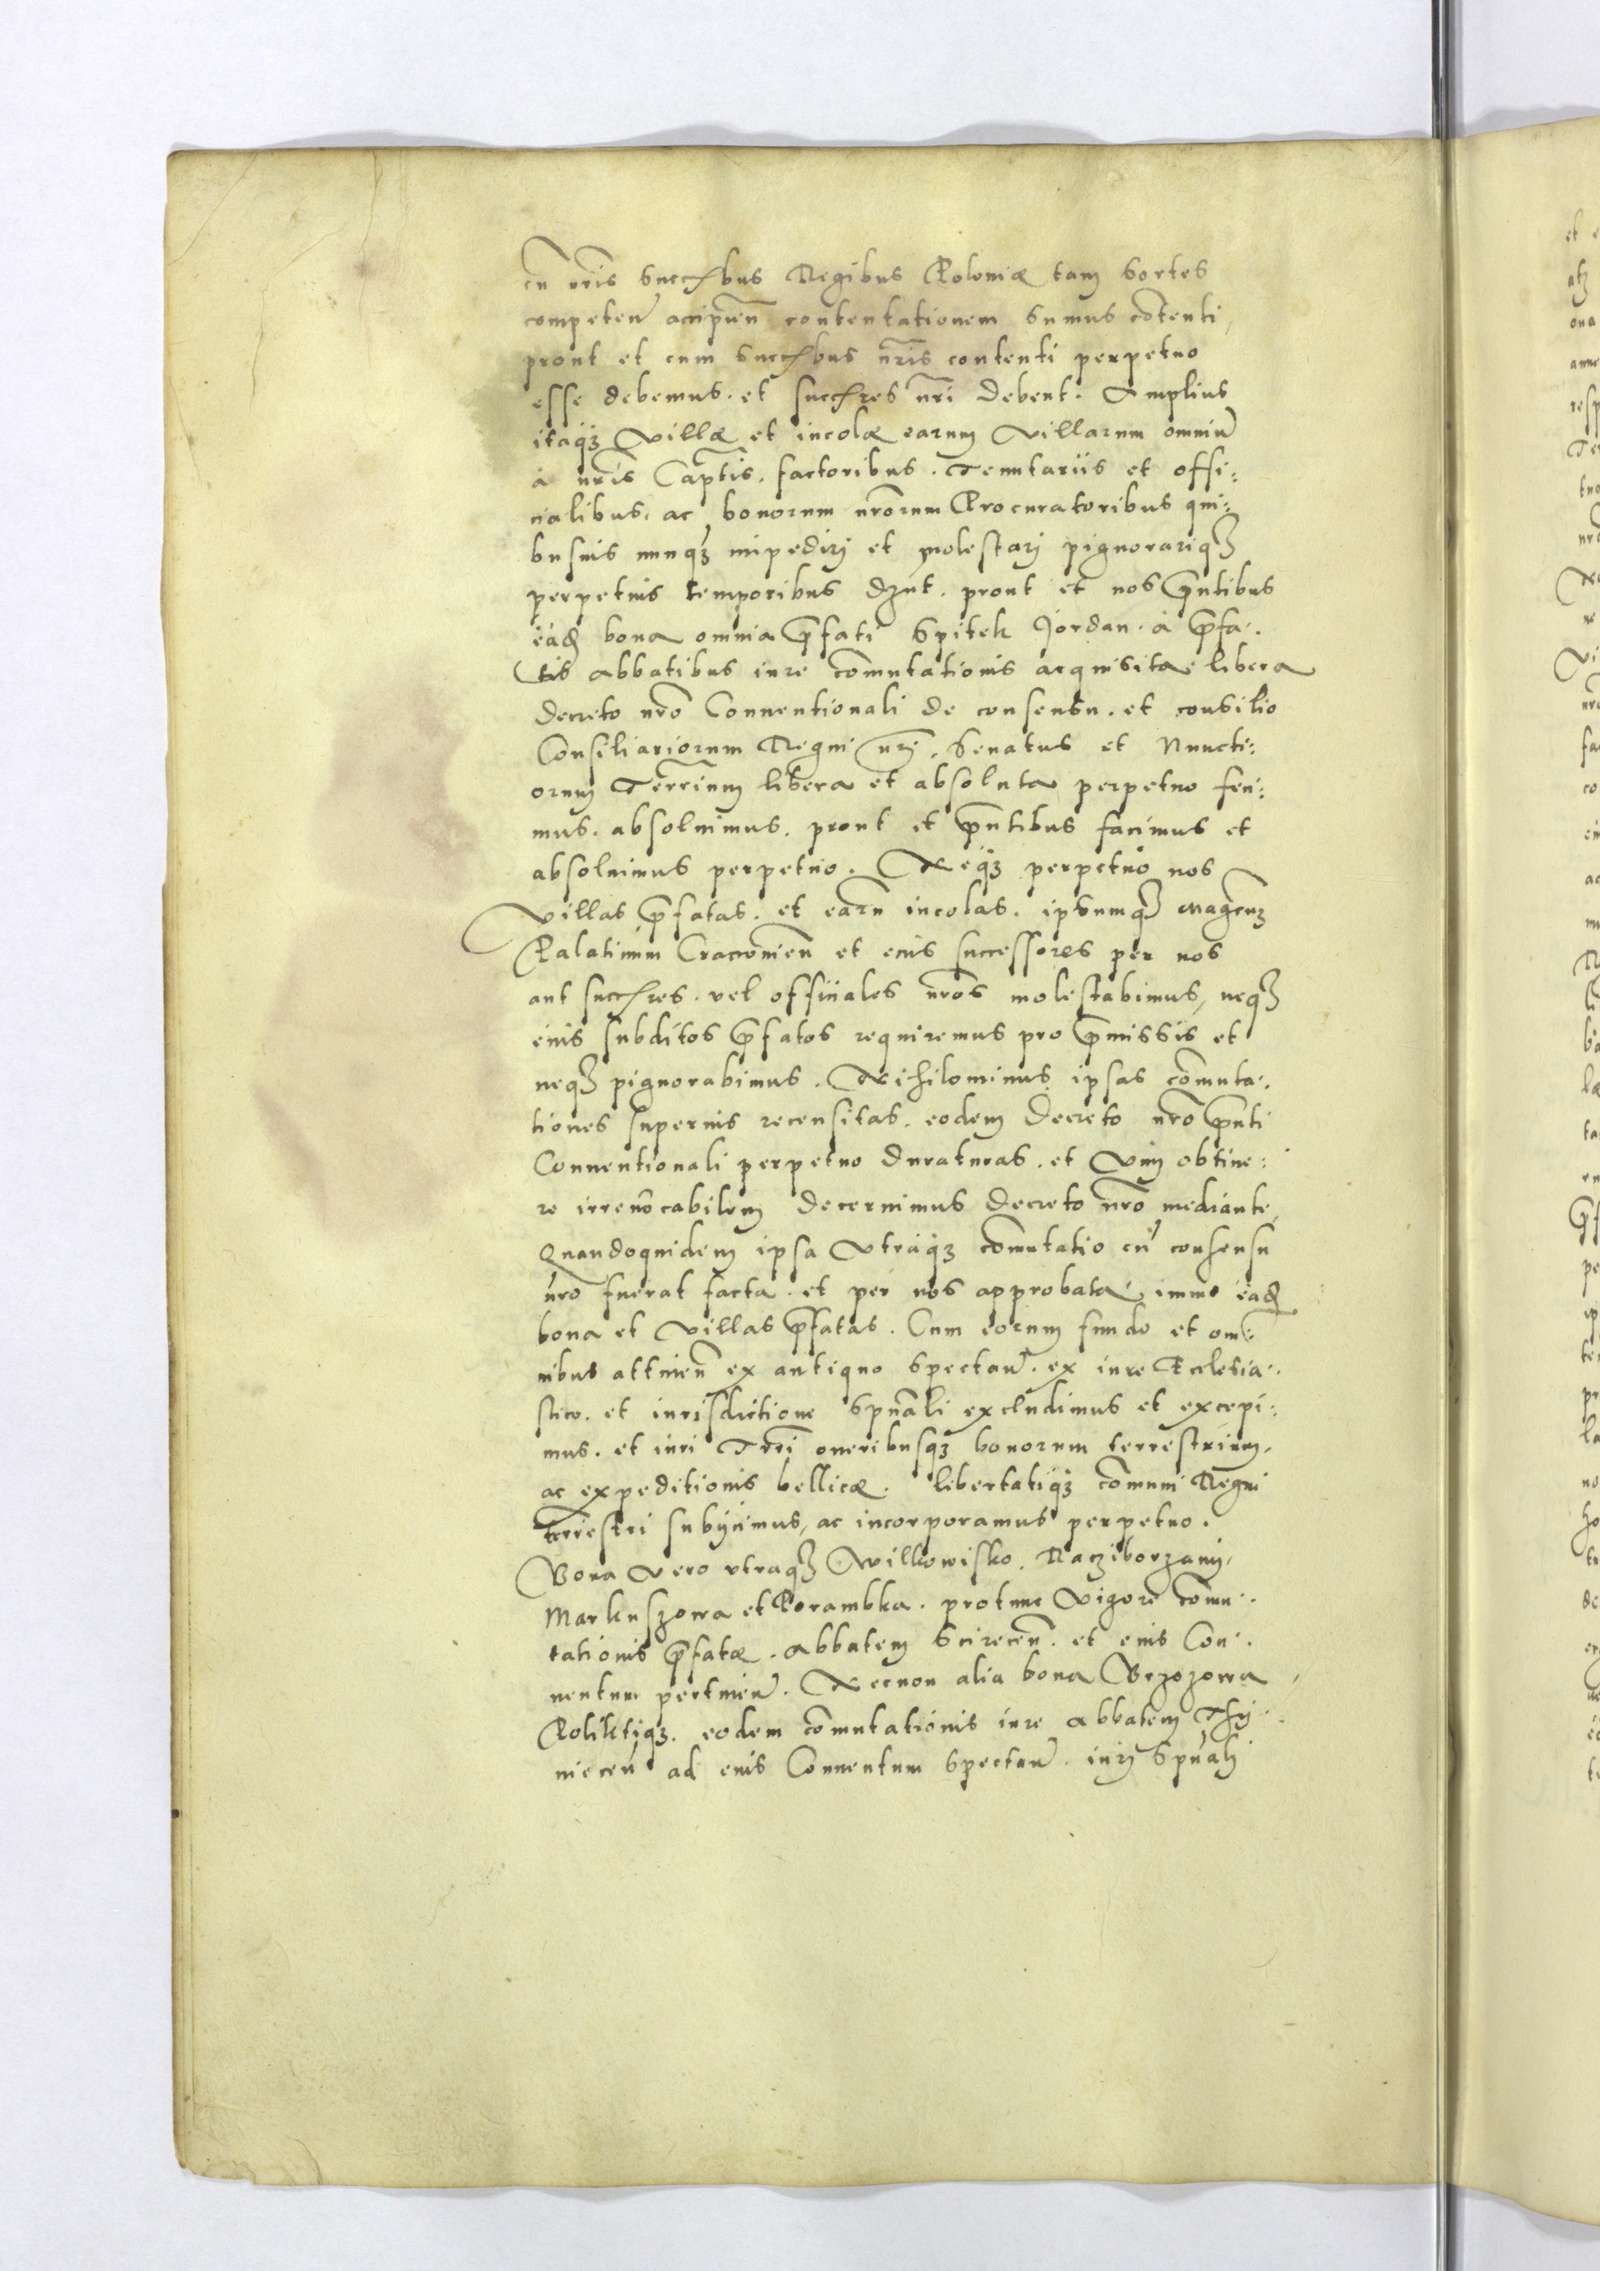 cū nr̄is succ̄bus Regibus Poloniæ tam sortes
competen̄ accipien̄ contentationem sumus cōtenti,
prout et cum succ̄bus nr̄is contenti perpetuo
esse debemus. et succ̄res nr̄i debent. Amplius
itaqꝫ villæ et incolæ earum villarum omniū
à nr̄is Capt̄is. factoribus. Tenutariis et offi:
cialibus. ac bonorum nr̄orum Procuratoribus qui:
busuis nunqꝫ impediri et molestari pignorariqꝫ
perpetuis temporibus dn̄t. prout et nos p̄ntibus
ead̄ bona omnia p̄fati Spitek Jordan. à p̄fa.
tis abbatibus iure cōmutationis acquisita libera
decreto nr̄o Conuentionali de consensu. et consilio
Consiliariorum Regni nr̄i. Senatus et Nuncti:
orum Terr̄ium libera et absoluta perpetuo feci:
mus. absoluimus. prout et p̄ntibus facimus et
absoluimus perpetuo. Neqꝫ perpetuo nos
villas p̄fatas. et earū incolas. ipsumqꝫ magcum
Palatinum Cracouien̄ et eius successores per nos
aut succ̄res. vel officiales nr̄os molestabimus, neqꝫ
eius subditos p̄fatos requiremus pro p̄missis et
neqꝫ pignorabimus. Nihilominus ipsas cōmuta.
tiones superius recensitas. eodem decreto nr̄o p̄nti
Conuentionali perpetuo duraturas. et vim obtine:
re irreuocabilem decernimus decreto nr̄o mediante,
Quandoquidem ipsa vtraqꝫ cōmutatio cū consensu
nr̄o fuerat facta. et per nos approbata, immo ead̄
bona et villas p̄fatas. Cum eorum fundo et om̄:
nibus attinen̄ ex antiquo spectan̄. ex iure Ecclesia.
stico. et iurisdictione sp̄uali excludimus et excepi:
mus. et iuri Trr̄i oneribusqꝫ bonorum terrestrium,
ac expeditionis bellicæ. libertatiqꝫ cōmuni Regni
terrestri subijcimus, ac incorporamus perpetuo.
Bona vero vtraqꝫ Wilkowisko. Racziborzany,
Markuszowa et Porambka. pro tunc vigore cōmu.
tationis p̄fatæ. abbatem Sciricen̄. et eius Con.
uentum pertinen̄. Necnon alia bona Brzozowa
Poliktiqꝫ. eodem cōmutationis iure abbatem Thy.
niecen̄ ad eius Conuentum spectan̄. iuri sp̄uali